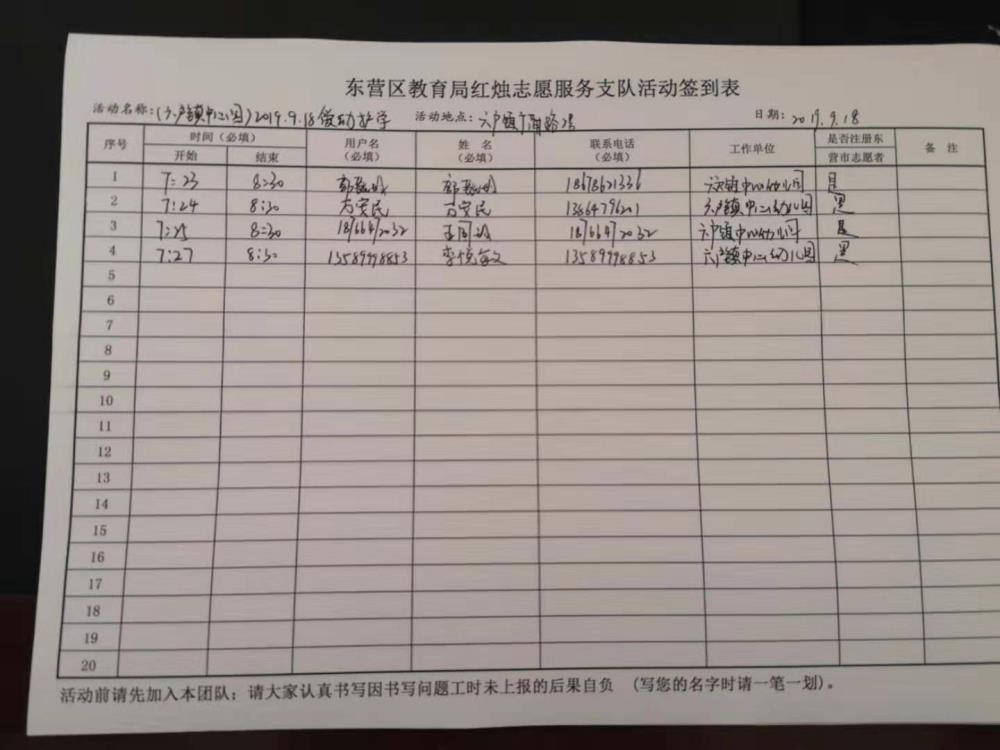 东营区教育局红烛志愿服务支队活动签到表
活动名称：(六户镇中心园)2019.9.18 护学 活动地点：六户镇 日期：2019.9.18
序号 时间（必填） 用户名（必填） 姓 名（必填） 联系电话（必填） 工作单位 是否注册东营市志愿者 备 注
开始 结束
1 7:23 8:30 18678621336 六户镇中心幼儿园 是
2 7:24 8:30 方安民 方安民 13864796201 六户镇中心幼儿园 是
3 7:25 8:30 18766412032 18766412032 六户镇中心幼儿园 是
4 7:27 8:30 13589998853 李悦敏 13589998853 六户镇中心幼儿园 是
5
6
7
8
9
10
11
12
13
14
15
16
17
18
19
20
活动前请先加入本团队；请大家认真书写因书写问题工时未上报的后果自负 （写您的名字时请一笔一划）。